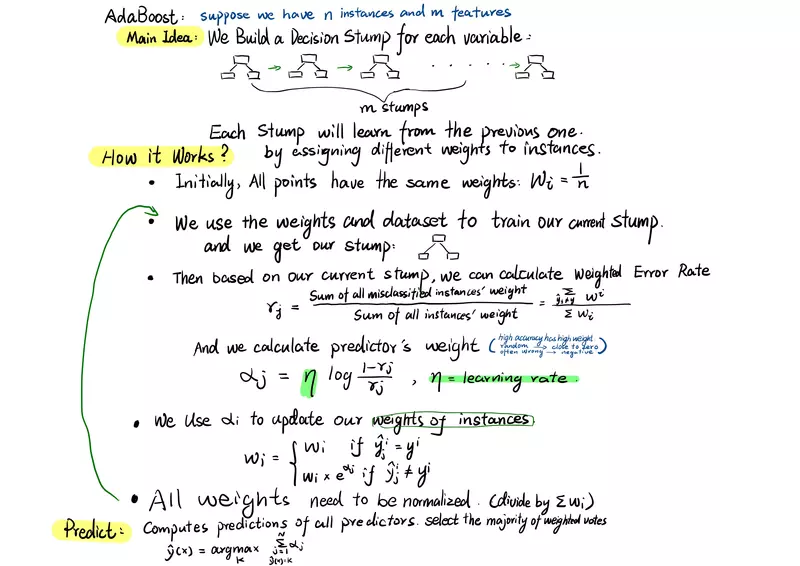 AdaBoost: suppose we have n instances and m features
Main Idea: We Build a Decision Stump for each variable:
m stumps
Each Stump will learn from the previous one.
How it Works? by assigning different weights to instances.
• Initially, All points have the same weights: Wi = 1/n
• We use the weights and dataset to train our current stump.
and we get our stump:
• Then based on our current stump, we can calculate Weighted Error Rate
rj = Sum of all misclassified instances' weight / Sum of all instances' weight = Σ ŷi≠y wi / Σ wi
And we calculate predictor's weight (high accuracy has high weight
random → close to zero
often wrong → negative)
αj = η log 1-rj / rj , η = learning rate.
• We Use αi to update our weights of instances
Wi = { Wi if ŷji = yi
Wi × e^αj if ŷji ≠ yi
• All weights need to be normalized. (divide by Σwi)
Predict: Computes predictions of all predictors. select the majority of weighted votes
ŷ(x) = argmax k Σ N j=1 αj ŷj(x)=k